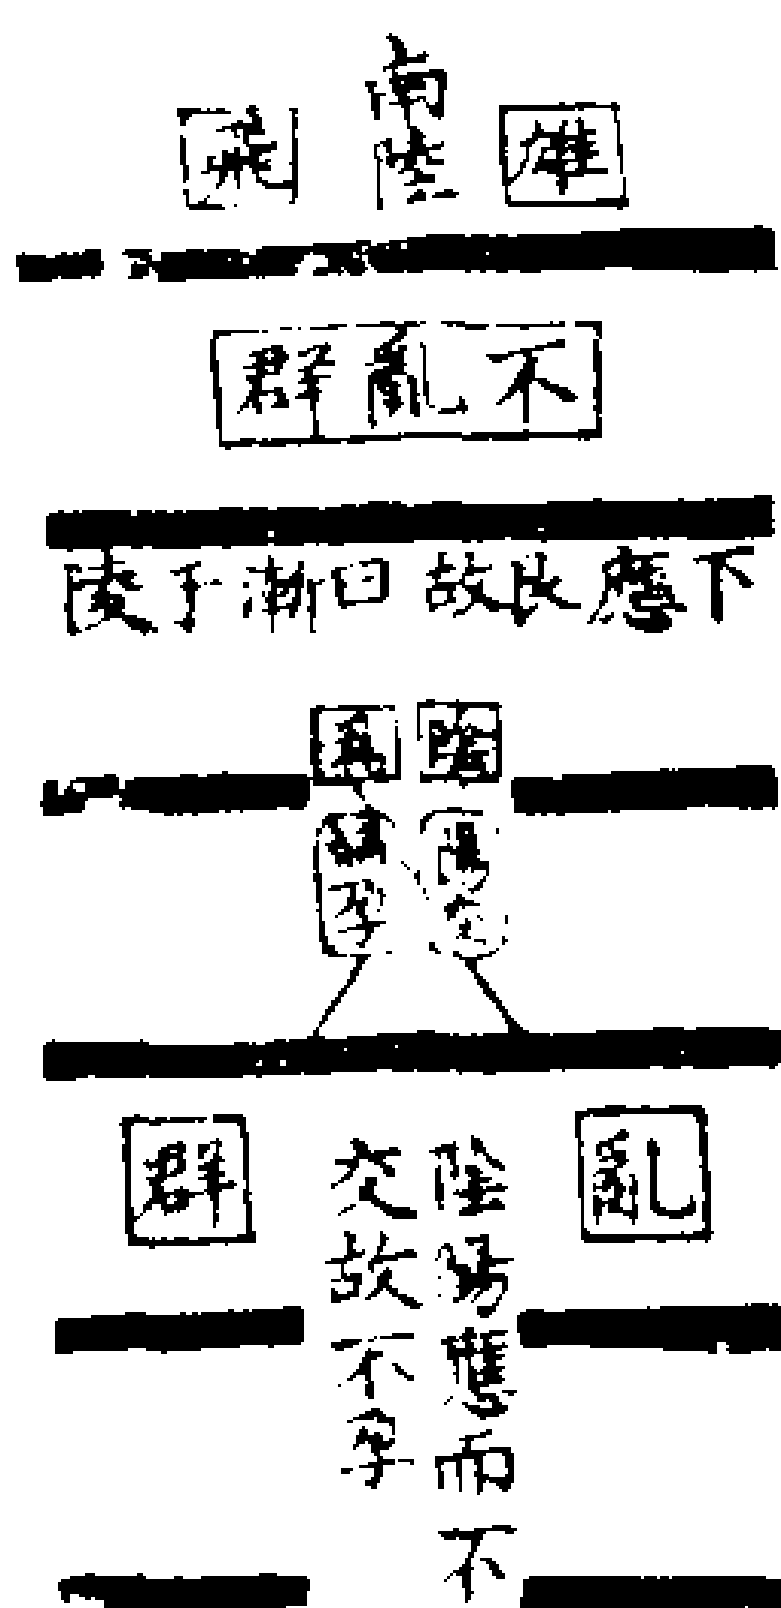 雄
南陸
飛
不亂群
下應艮故曰漸于陵
陰
婦孕
亂
陰陽應而不
交故不孕
群